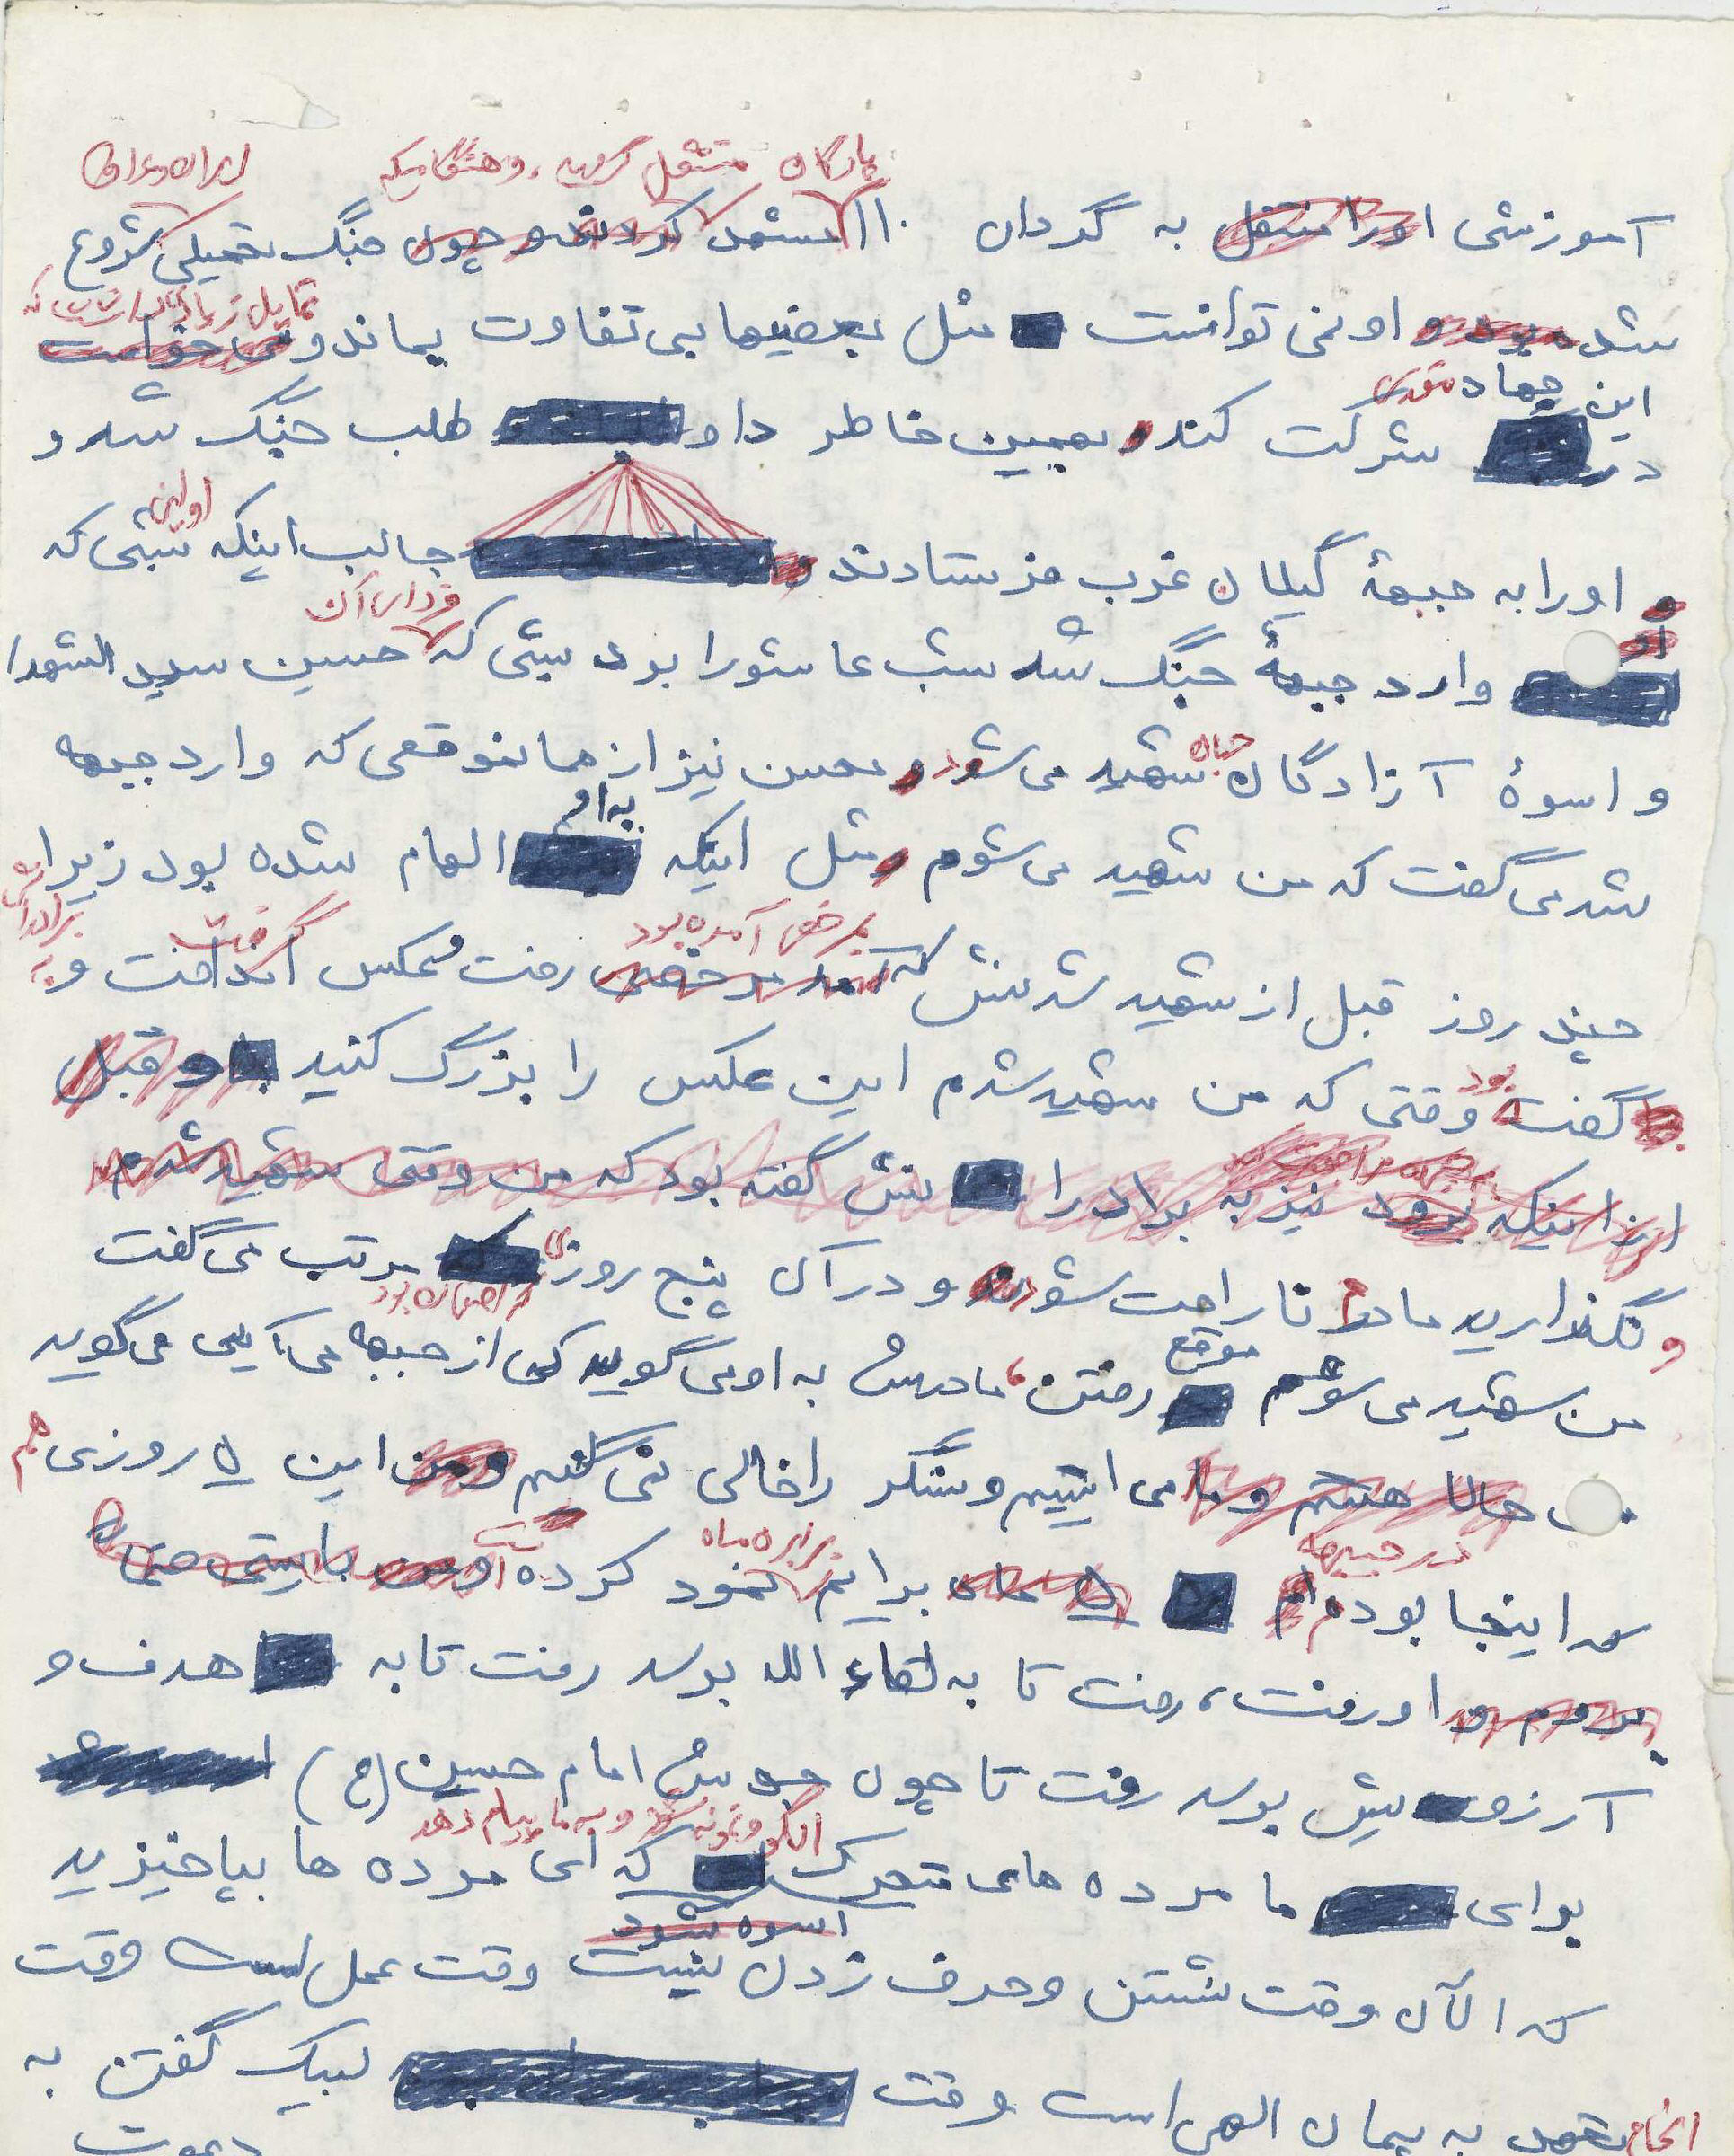 پادگان منتقل کردند. و هنگامیکه ایران و عراق
آموزشی او را منتقل به گردان ۱۱۰ کردند و چون جنگ تحمیلی شروع
تمایل زیادی داشت که
شده بود و او نمی توانست مثل بعضیها بی تفاوت بماند و می خواست
این جهاد مقدس
در شرکت کند و بهمین خاطر داوطلب جنگ شد و
اولین
و او را به جبههٔ گیلان غرب فرستادند و جالب اینکه شبی که
او فردای آن
وارد جبههٔ جنگ شد شب عاشورا بود شبی که حسین سید الشهدا
جهان
و اسوهٔ آزادگان شهید می شود و محسن نیز از همانموقعی که وارد جبهه
به او
شد می گفت که من شهید می شوم و مثل اینکه الهام شده بود زیرا
بمرخصی آمده بود گرفت به برادرانش
چند روز قبل از شهید شدنش که آمد مرخصی رفت عکس انداخت و
بود
گفت وقتی که من شهید شدم این عکس را بزرگ کنید و قبل
از اینکه برود نیز به برادرانش گفته بود که من وقتی شهید شدم
و نگذارید مادر ناراحت شود و در آن پنج روزی که مرتب می گفت
موقع
من شهید می شوم رفتن مادرش به او می گوید کی از جبهه می آیی می گوید
حالا هستیم و ما می ایستیم و سنگر را خالی نمی کنیم و من این ۵ روزی هم
در جبهه برابر ۵ ماه
که اینجا بودم ۵ ماه برایم نمود کرده است و من بایستی
بروم و او رفت، رفت تا به لقاء الله برسد رفت تا به هدف و
آرزویش برسد رفت تا چون امام حسین (ع)
الگو و نمونه و به ما پیام دهد
برای ما مرده های متحرک که ای مرده ها بپاخیزید
اسوه بشود
که الآن وقت نشستن و حرف زدن نیست وقت عمل است وقت
انجام تعهد به پیمان الهی است وقت لبیک گفتن به
دعوت